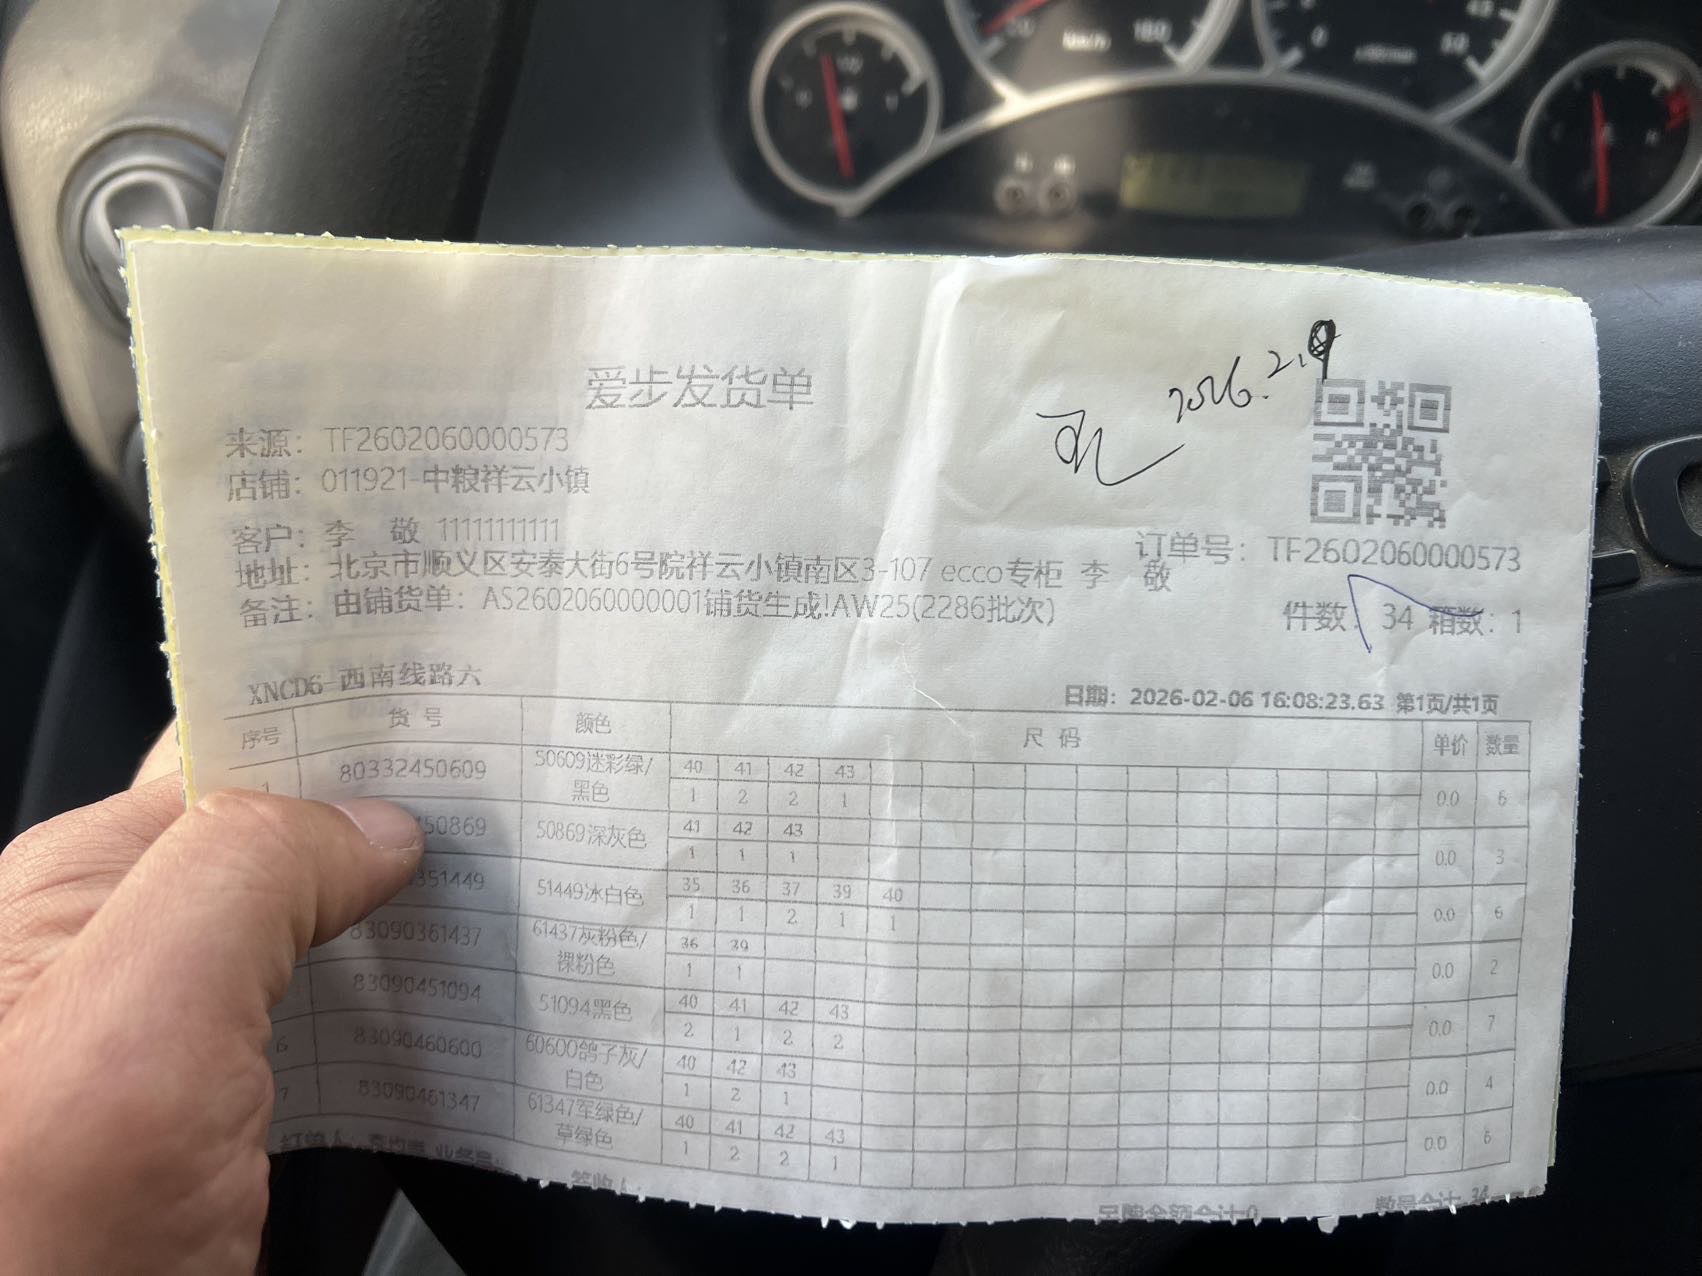 爱步发货单
2026.2.9
来源: TF2602060000573
店铺: 011921-中粮祥云小镇
客户: 李 敬 11111111111
订单号: TF2602060000573
地址: 北京市顺义区安泰大街6号院祥云小镇南区3-107 ecco专柜 李 敬
备注: 由铺货单: AS2602060000001铺货生成!AW25(2286批次)
件数: 34 箱数: 1
XNCD6-西南线路六
日期: 2026-02-06 16:08:23.63 第1页/共1页
序号 货号 颜色 尺码 单价 数量
1 80332450609 50609迷彩绿/黑色 40 41 42 43 0.0 6
1 2 2 1
50869 50869深灰色 41 42 43 0.0 3
1 1 1
351449 51449冰白色 35 36 37 39 40 0.0 6
1 1 2 1 1
83090361437 61437灰粉色/裸粉色 36 39 0.0 2
1 1
83090451094 51094黑色 40 41 42 43 0.0 7
2 1 2 2
6 83090460600 60600鸽子灰/白色 40 42 43 0.0 4
1 2 1
7 83090461347 61347军绿色/草绿色 40 41 42 43 0.0 6
1 2 2 1
签收人:
吊牌金额合计:0
数量合计:34
km/h 160